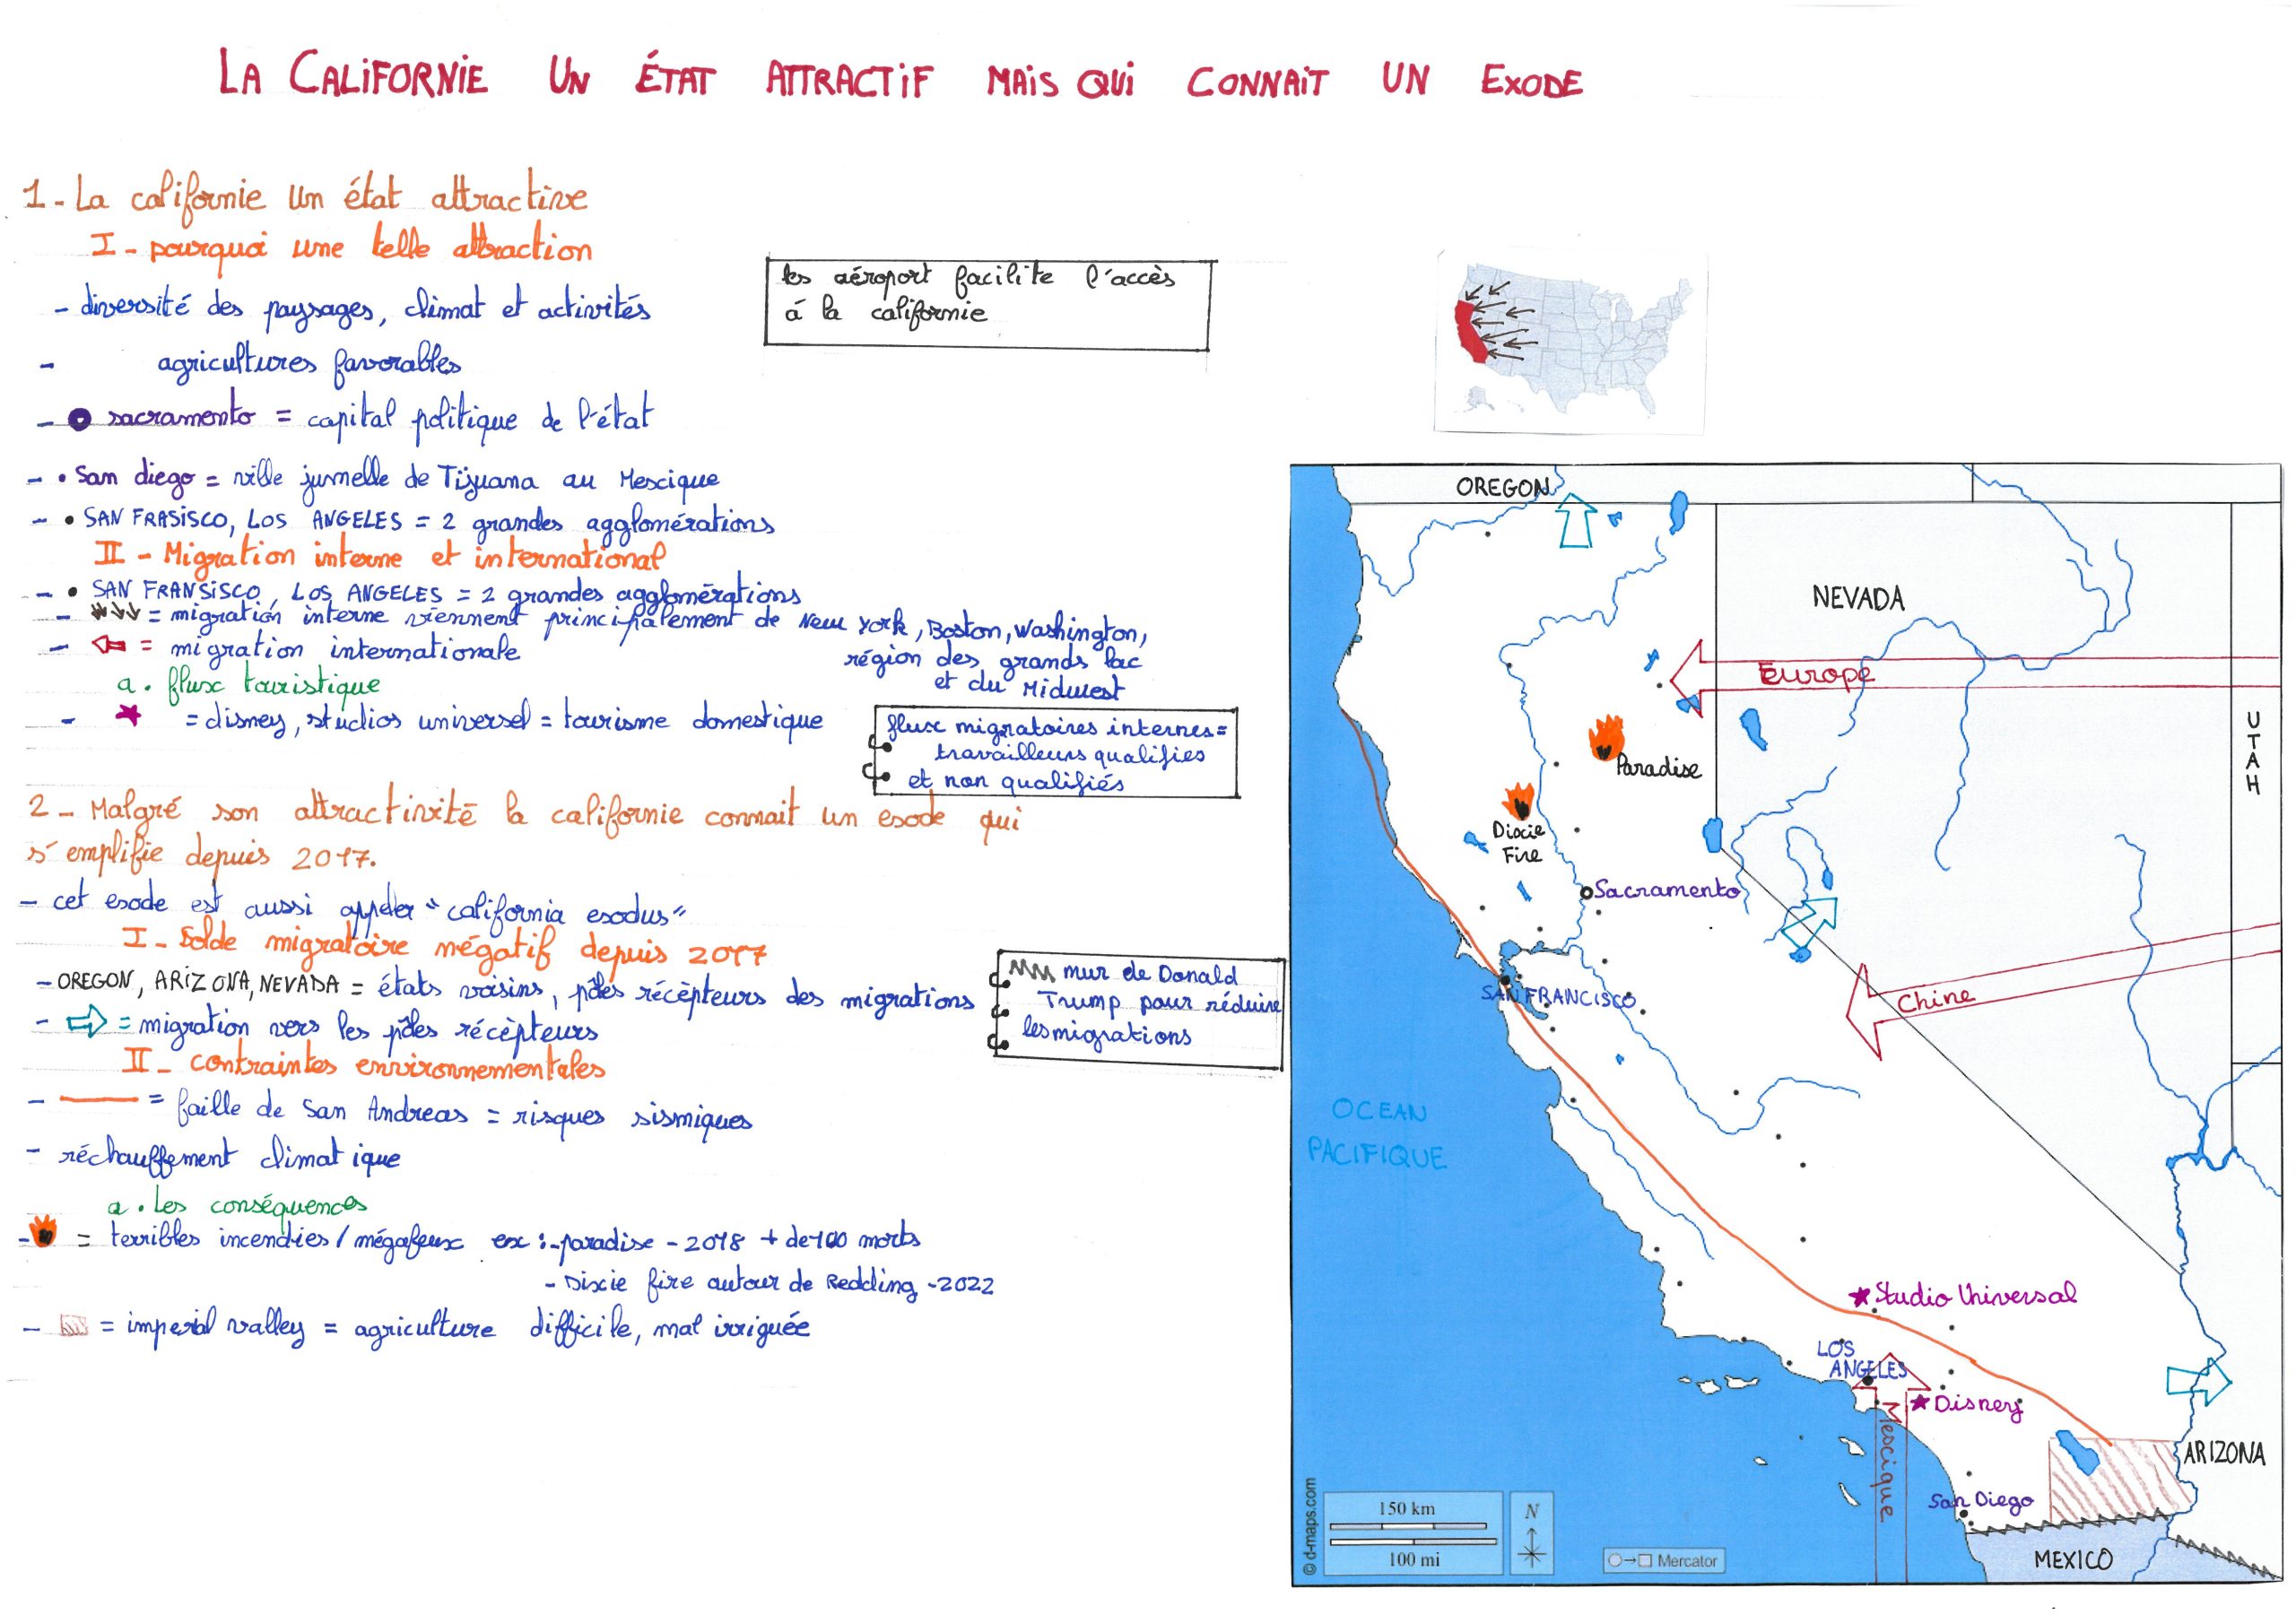 LA CALIFORNIE UN ÉTAT ATTRACTIF MAIS QUI CONNAIT UN EXODE
1 - La californie un état attractive
I - pourquoi une telle attraction
- diversité des paysages, climat et activités
- agricultures favorables
- sacramento = capital politique de l'état
- • San diego = ville jumelle de Tijuana au Mexique
- • SAN FRASISCO, LOS ANGELES = 2 grandes agglomérations
II - Migration interne et international
- • SAN FRANSISCO, LOS ANGELES = 2 grandes agglomérations
- = migration interne viennent principalement de New York, Boston, Washington,
région des grands lac
et du Midwest
- = migration internationale
a. flux touristique
- = disney, studios universel = tourisme domestique
les aéroport facilite l'accès
á la californie
flux migratoires internes =
travailleurs qualifies
et non qualifiés
2 - Malgré son attractivité la californie connait un exode qui
s'emplifie depuis 2017.
- cet exode est aussi appeler "california exodus"
I - Solde migratoire négatif depuis 2017
- OREGON, ARIZONA, NEVADA = états voisins, pôles récèpteurs des migrations
- = migration vers les pôles récèpteurs
II - contraintes environnementales
- = faille de San Andreas = risques sismiques
- réchauffement climatique
a. les conséquences
- = terribles incendies / mégafeux ex : - paradise - 2018 + de 100 morts
- Dixie fire autour de Redding - 2022
- = imperial valley = agriculture difficile, mal irriguée
mur de Donald
Trump pour réduire
les migrations
OREGON
NEVADA
Europe
UTAH
Paradise
Dixie
Fire
Sacramento
SAN FRANCISCO
Chine
OCEAN
PACIFIQUE
Studio Universal
LOS
ANGELES
Disney
Mexique
ARIZONA
San Diego
MEXICO
© d-maps.com
150 km
100 mi
N
Mercator